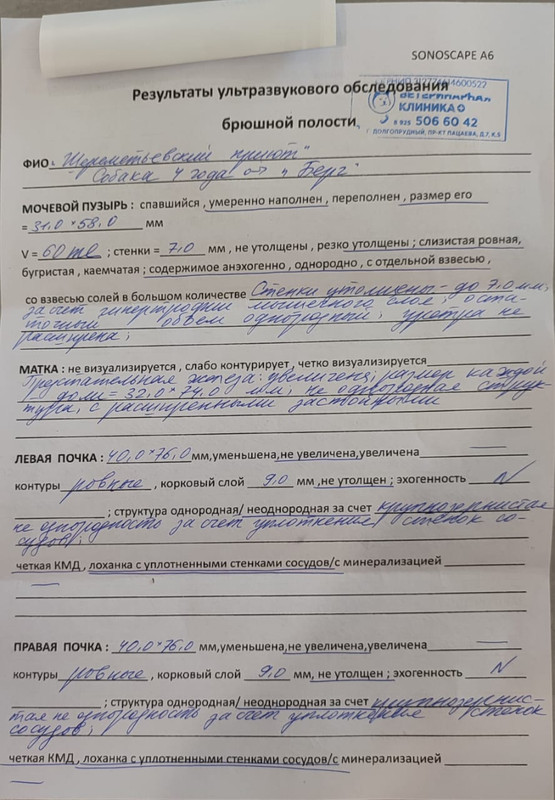 SONOSCAPE A6
Результаты ультразвукового обследования
брюшной полости
ВЕТЕРИНАРНАЯ
КЛИНИКА
8 925 506 60 42
Г. ДОЛГОПРУДНЫЙ, ПР-КТ ПАЦАЕВА, Д.7, К.5
ФИО: "Шереметьевский приют"
Собака 4 года "Берг"
МОЧЕВОЙ ПУЗЫРЬ : спавшийся , умеренно наполнен , переполнен , размер его
= 31,0 × 58,0 мм
V = 60 ml ; стенки = 7,0 мм , не утолщены , резко утолщены ; слизистая ровная,
бугристая , каемчатая ; содержимое анэхогенно , однородно , с отдельной взвесью ,
со взвесью солей в большом количестве Стенки утолщены - до 7,0 мм,
за счет гипертрофии мышечного слоя; оста-
точный объем однородный; уретра не
расширена;
МАТКА : не визуализируется , слабо контурирует , четко визуализируется
Предстательная железа: увеличена; размер каждой
доли = 32,0 × 74,0 мм; не однородная струк-
тура, с расширенными застойными
ЛЕВАЯ ПОЧКА : 40,0 × 76,0 мм,уменьшена,не увеличена,увеличена —
контуры ровные , корковый слой 9,0 мм ,не утолщен ; эхогенность N
; структура однородная/ неоднородная за счет крупнозернистая
не однородность за счет уплотнения стенок со-
судов;
четкая КМД , лоханка с уплотненными стенками сосудов/с минерализацией
—
ПРАВАЯ ПОЧКА : 40,0 × 76,0 мм,уменьшена,не увеличена,увеличена —
контуры ровные , корковый слой 9,0 мм, не утолщен ; эхогенность N
; структура однородная/ неоднородная за счет крупнозернис-
тая не однородность за счет уплотнения стенок
сосудов;
четкая КМД , лоханка с уплотненными стенками сосудов/с минерализацией
—